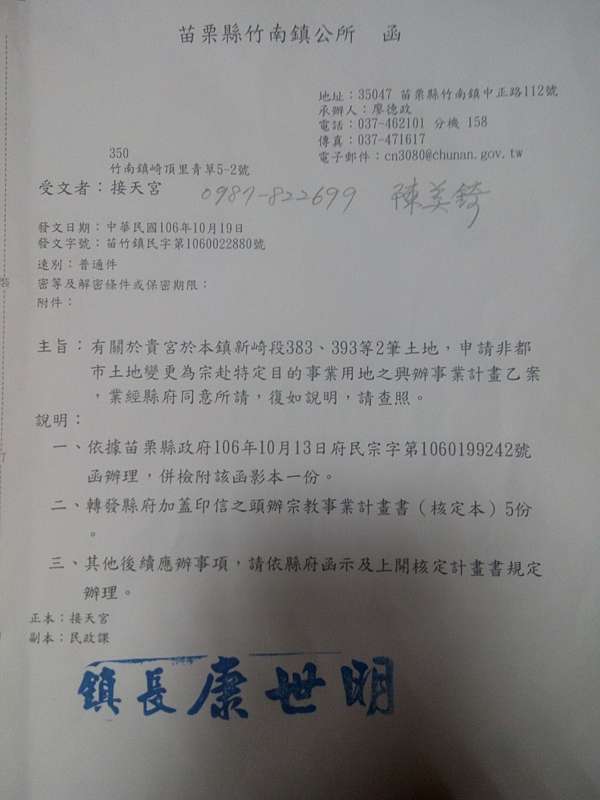 苗栗縣竹南鎮公所　函
地址：35047 苗栗縣竹南鎮中正路112號
承辦人：廖德政
電話：037-462101 分機 158
傳真：037-471617
電子郵件：cn3080@chunan.gov.tw
350
竹南鎮崎頂里青草5-2號
受文者：接天宮 0987-822699 陳美錡
發文日期：中華民國106年10月19日
發文字號：苗竹鎮民字第1060022880號
速別：普通件
密等及解密條件或保密期限：
附件：
裝
主旨：有關於貴宮於本鎮新崎段383、393等2筆土地，申請非都
市土地變更為宗赴特定目的事業用地之興辦事業計畫乙案
，業經縣府同意所請，復如說明，請查照。
說明：
一、依據苗栗縣政府106年10月13日府民宗字第1060199242號
函辦理，併檢附該函影本一份。
二、轉發縣府加蓋印信之頭辦宗教事業計畫書（核定本）5份
。
三、其他後續應辦事項，請依縣府函示及上開核定計畫書規定
辦理。
正本：接天宮
副本：民政課
鎮長康世明